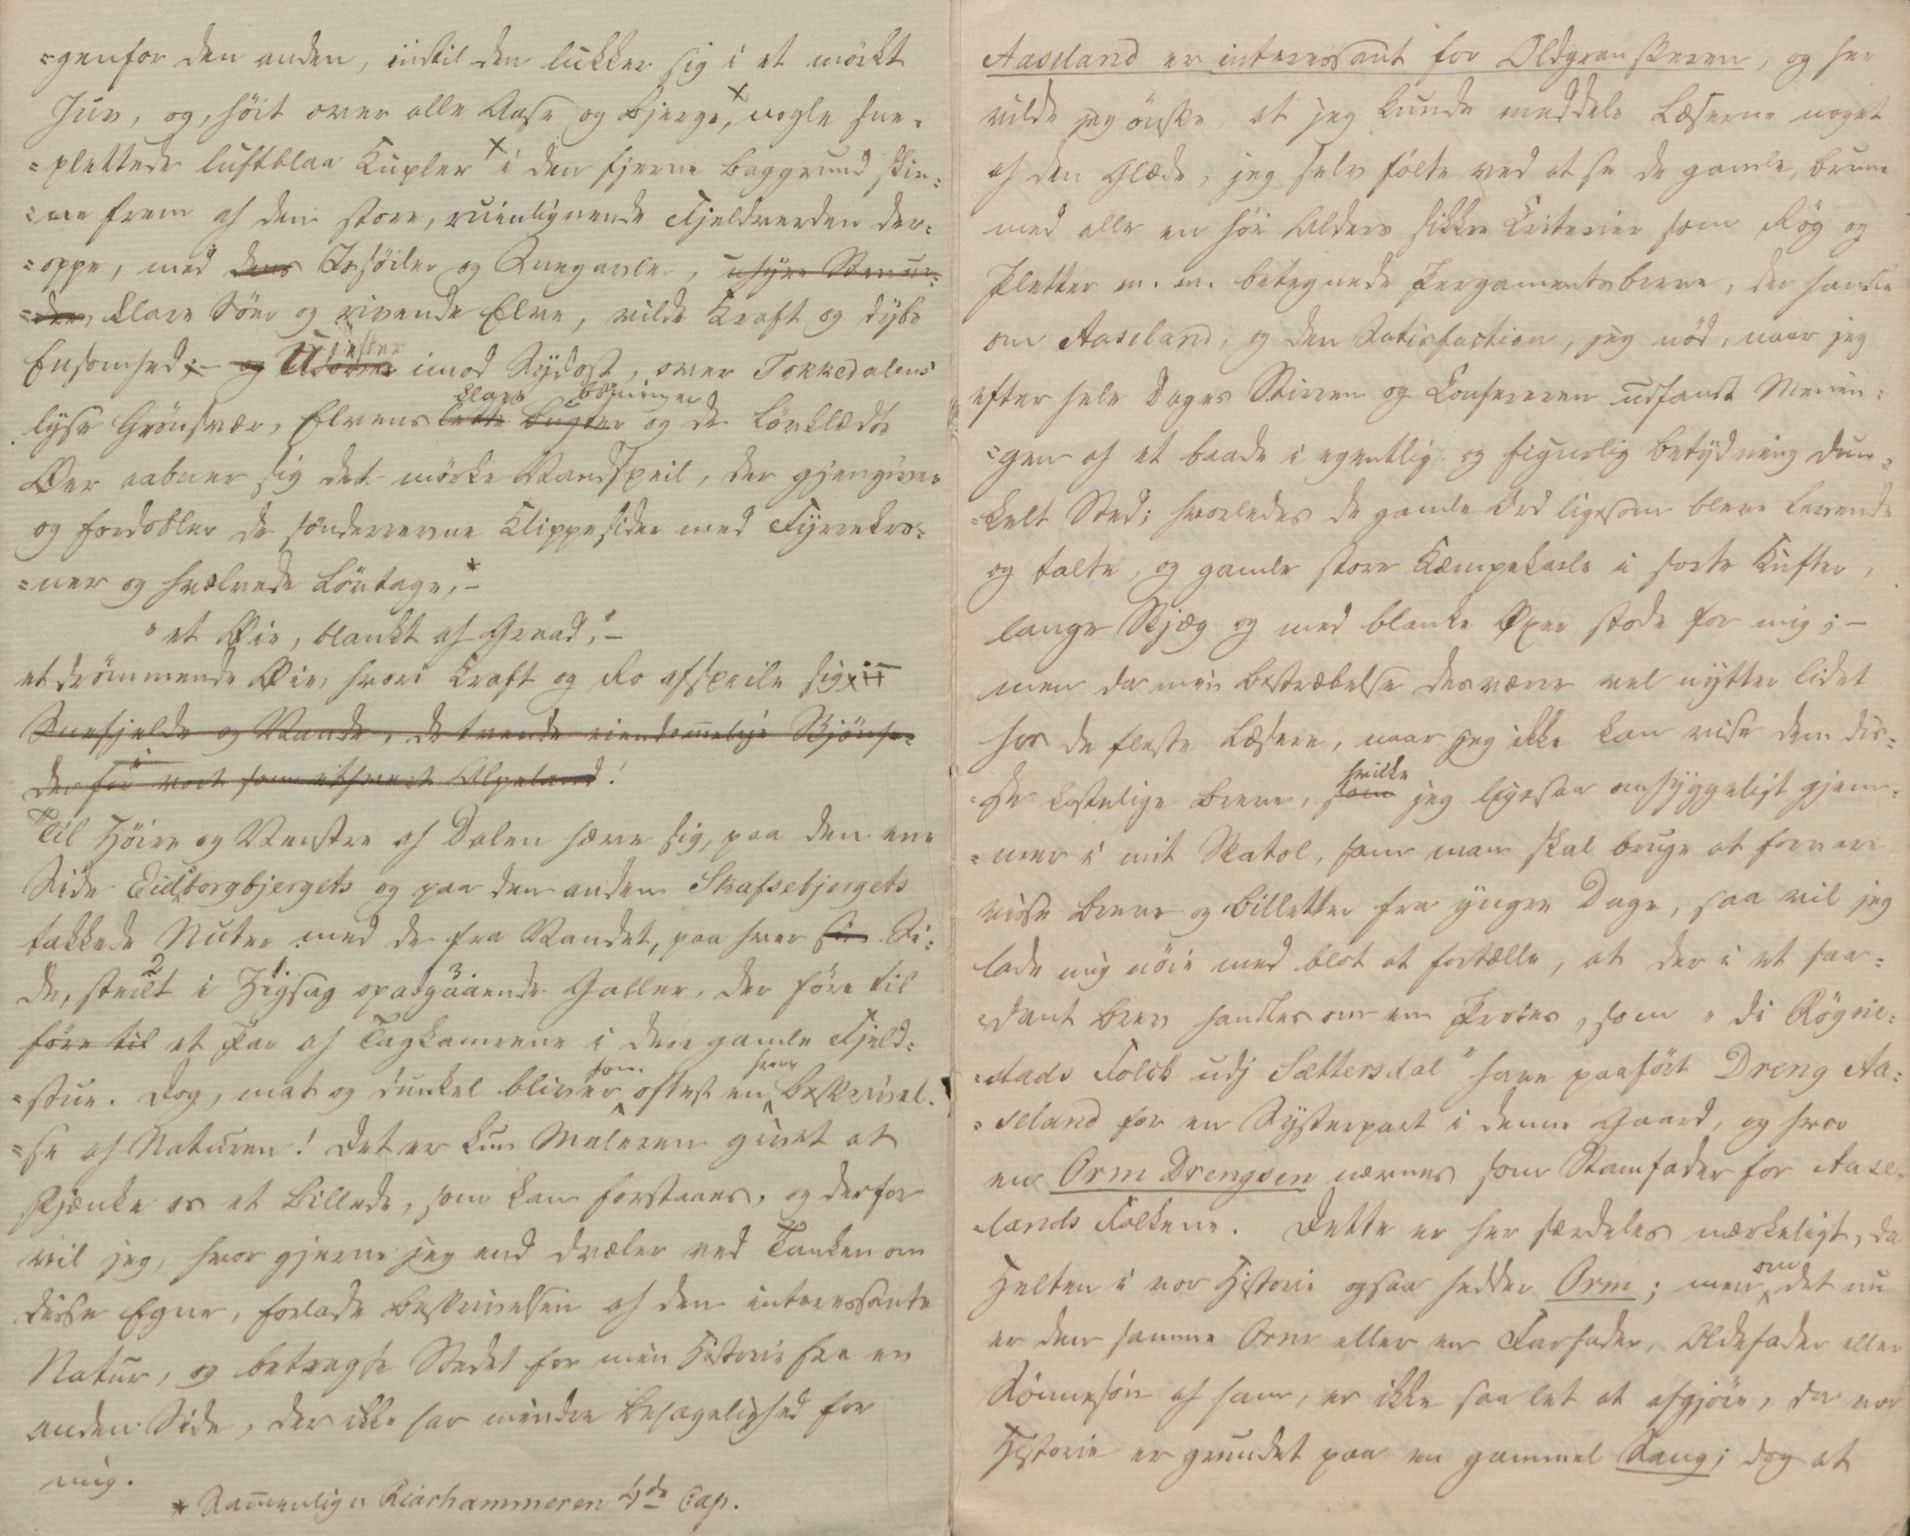 =genfor den anden, indtil den lukker sig i et mörkt
Juv, og, höit over alle Aase og Bjerge, nogle sne=
=plettede luftblaa Kupler i den fjerne Baggrund skin=
=ne frem af den store, ruinlignende Fjeldverden der=
=oppe, med dens Issöiler og Snegavle, uhyre Steenur=
=der, klare Söer og rivende Elve, vilde Kraft og dybe
Ensomhed; – og Udover imod Sydost, over Tokkedalens
klare böininger
lyse Grönsvær, Elvens lette Bugter og de Lövklædte
Öer aabner sig det mörke Vandspeil, der gjengiver
og fordobler de sönderrevne Klippesider med Fyrrekro=
=ner og hvælvede Lövtage, – *
"et Öie, blankt af Graad," –
et drömmende Öie, hvori Kraft og Ro afspeile sig
Snefjelde og Vande, de tvende eiendommelige Skjönhe=
der for vort som ethvert Alpeland!
Til Höire og Venstre af Dalen hæve sig, paa den ene
Side Eidsborgbjergets og paa den anden Skafsebjergets
takkede Nuter med de fra Vandet, paa hver sin Si=
de, steilt i Zigsag opadgaaende Galler, der före til
före til et Par af Tagkamrene i den gamle Fjeld=
=stue. Dog, mat og dunkel bliver som oftest en hver Beskrivel=
=se af Naturen! Det er kun Maleren givet at
skjænke os et Billede, som kan forstaaes, og derfor
vil jeg, hvor gjerne jeg end dvæler ved Tanken om
disse Egne, forlade Beskrivelsen af den interessante
Natur, og betragte Stedet for min Historie fra en
anden Side, der ikke har mindre Behagelighed for
mig.
* Sammenlign Riarhammeren 4de Cap.
Aaseland er interessant for Oldgranskeren, og her
vilde jeg önske at jeg kunde meddele Læserne noget
af den Glæde, jeg selv fölte ved at se de gamle, brune
med alle en höi Alders sikkre Kriterier som Rög og
Pletter m. m. betegnede Pergamentsbreve, der handle
om Aaseland, og den Satisfaction, jeg nöd, naar jeg
efter hele Dages Stirren og Confereren udfandt Menin=
=gen af et baade i egentlig og figurlig Betydning dun=
=kelt Sted; hvorledes de gamle Ord ligesom bleve levende
og talte, og gamle store Kæmpekarle i sorte Kufter,
lange Skjæg og med blanke Öxer stode for mig; –
men da min Bestræbelse desværre vel nytter lidet
hos de fleste Læsere, naar jeg ikke kan vise dem dis=
hvilke
=se kostelige Breve, som jeg ligesaa omhyggeligt gjem=
=mer i mit Skatol, som man skal bruge at forvare
visse Breve og Billetter fra yngre Dage, saa vil jeg
lade mig nöie med blot at fortælle, at der i et saa=
=dant Brev handles om en Proces, som "di Rögne=
=stads Folck udj Sættersdal" have paafört Dreng Aa=
=seland for en Systerpart i denne Gaard, og hvor
en Orm Drengsen nævnes som Stamfader for Aase=
=lands Folkene. Dette er her særdeles mærkeligt, da
Helten i vor Historie ogsaa hedder Orm; men om det nu
er den samme Orm eller en Farfader, Oldefader eller
Sönnesön af ham, er ikke saa let at afgjöre, da vor
Historie er grundet paa en gammel Sang; dog at